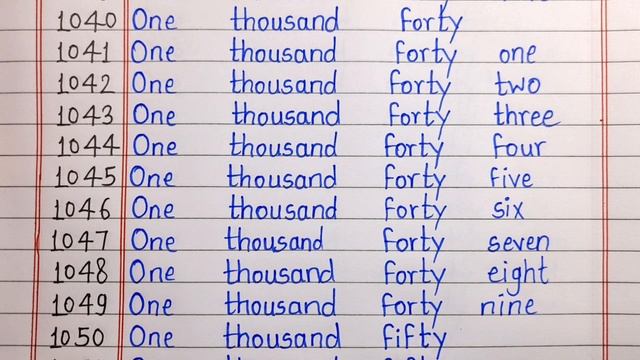 1040 One thousand forty
1041 One thousand forty one
1042 One thousand forty two
1043 One thousand forty three
1044 One thousand forty four
1045 One thousand forty five
1046 One thousand forty six
1047 One thousand forty seven
1048 One thousand forty eight
1049 One thousand forty nine
1050 One thousand fifty